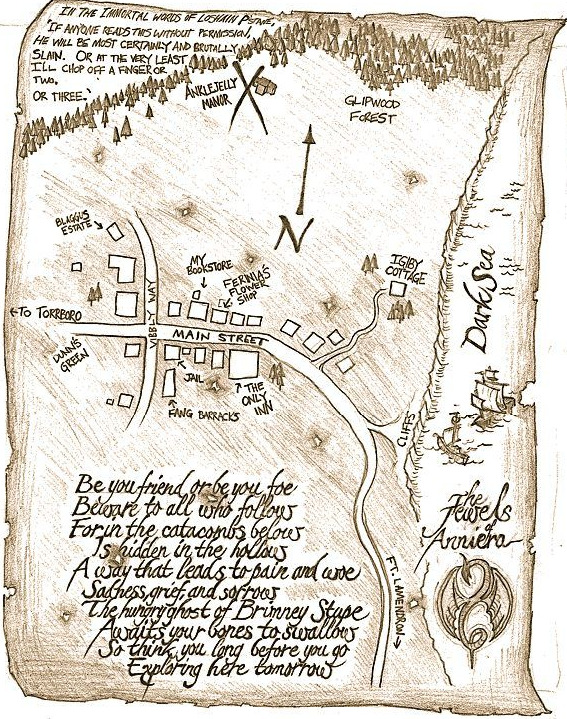 IN THE IMMORTAL WORDS OF LOSHAIN P'STANE,
"IF ANYONE READS THIS WITHOUT PERMISSION,
HE WILL BE MOST CERTAINLY AND BRUTALLY
SLAIN. OR AT THE VERY LEAST
I'LL CHOP OFF A FINGER OR
TWO,
OR THREE."
ANKLEJELLY
MANOR
GLIPWOOD
FOREST
N
BLAGGUS
ESTATE
MY
BOOKSTORE
FERNIA'S
FLOWER
SHOP
IGIBY
COTTAGE
Dark Sea
←TO TORRBORO
DUNN'S
GREEN
VIBBLY WAY
MAIN STREET
JAIL
THE
ONLY
INN
FANG BARRACKS
CLIFFS
Be you friend or be you foe
Beware to all who follow
For in the catacombs below
Is hidden in the hollow
A way that leads to pain and woe
Sadness, grief, and sorrows
The hungry ghost of Brimney Stupe
Awaits your bones to swallow
So think you long before you go
Exploring here tomorrow
The
Jewels
of
Anniera
FT. LAMENDRON →